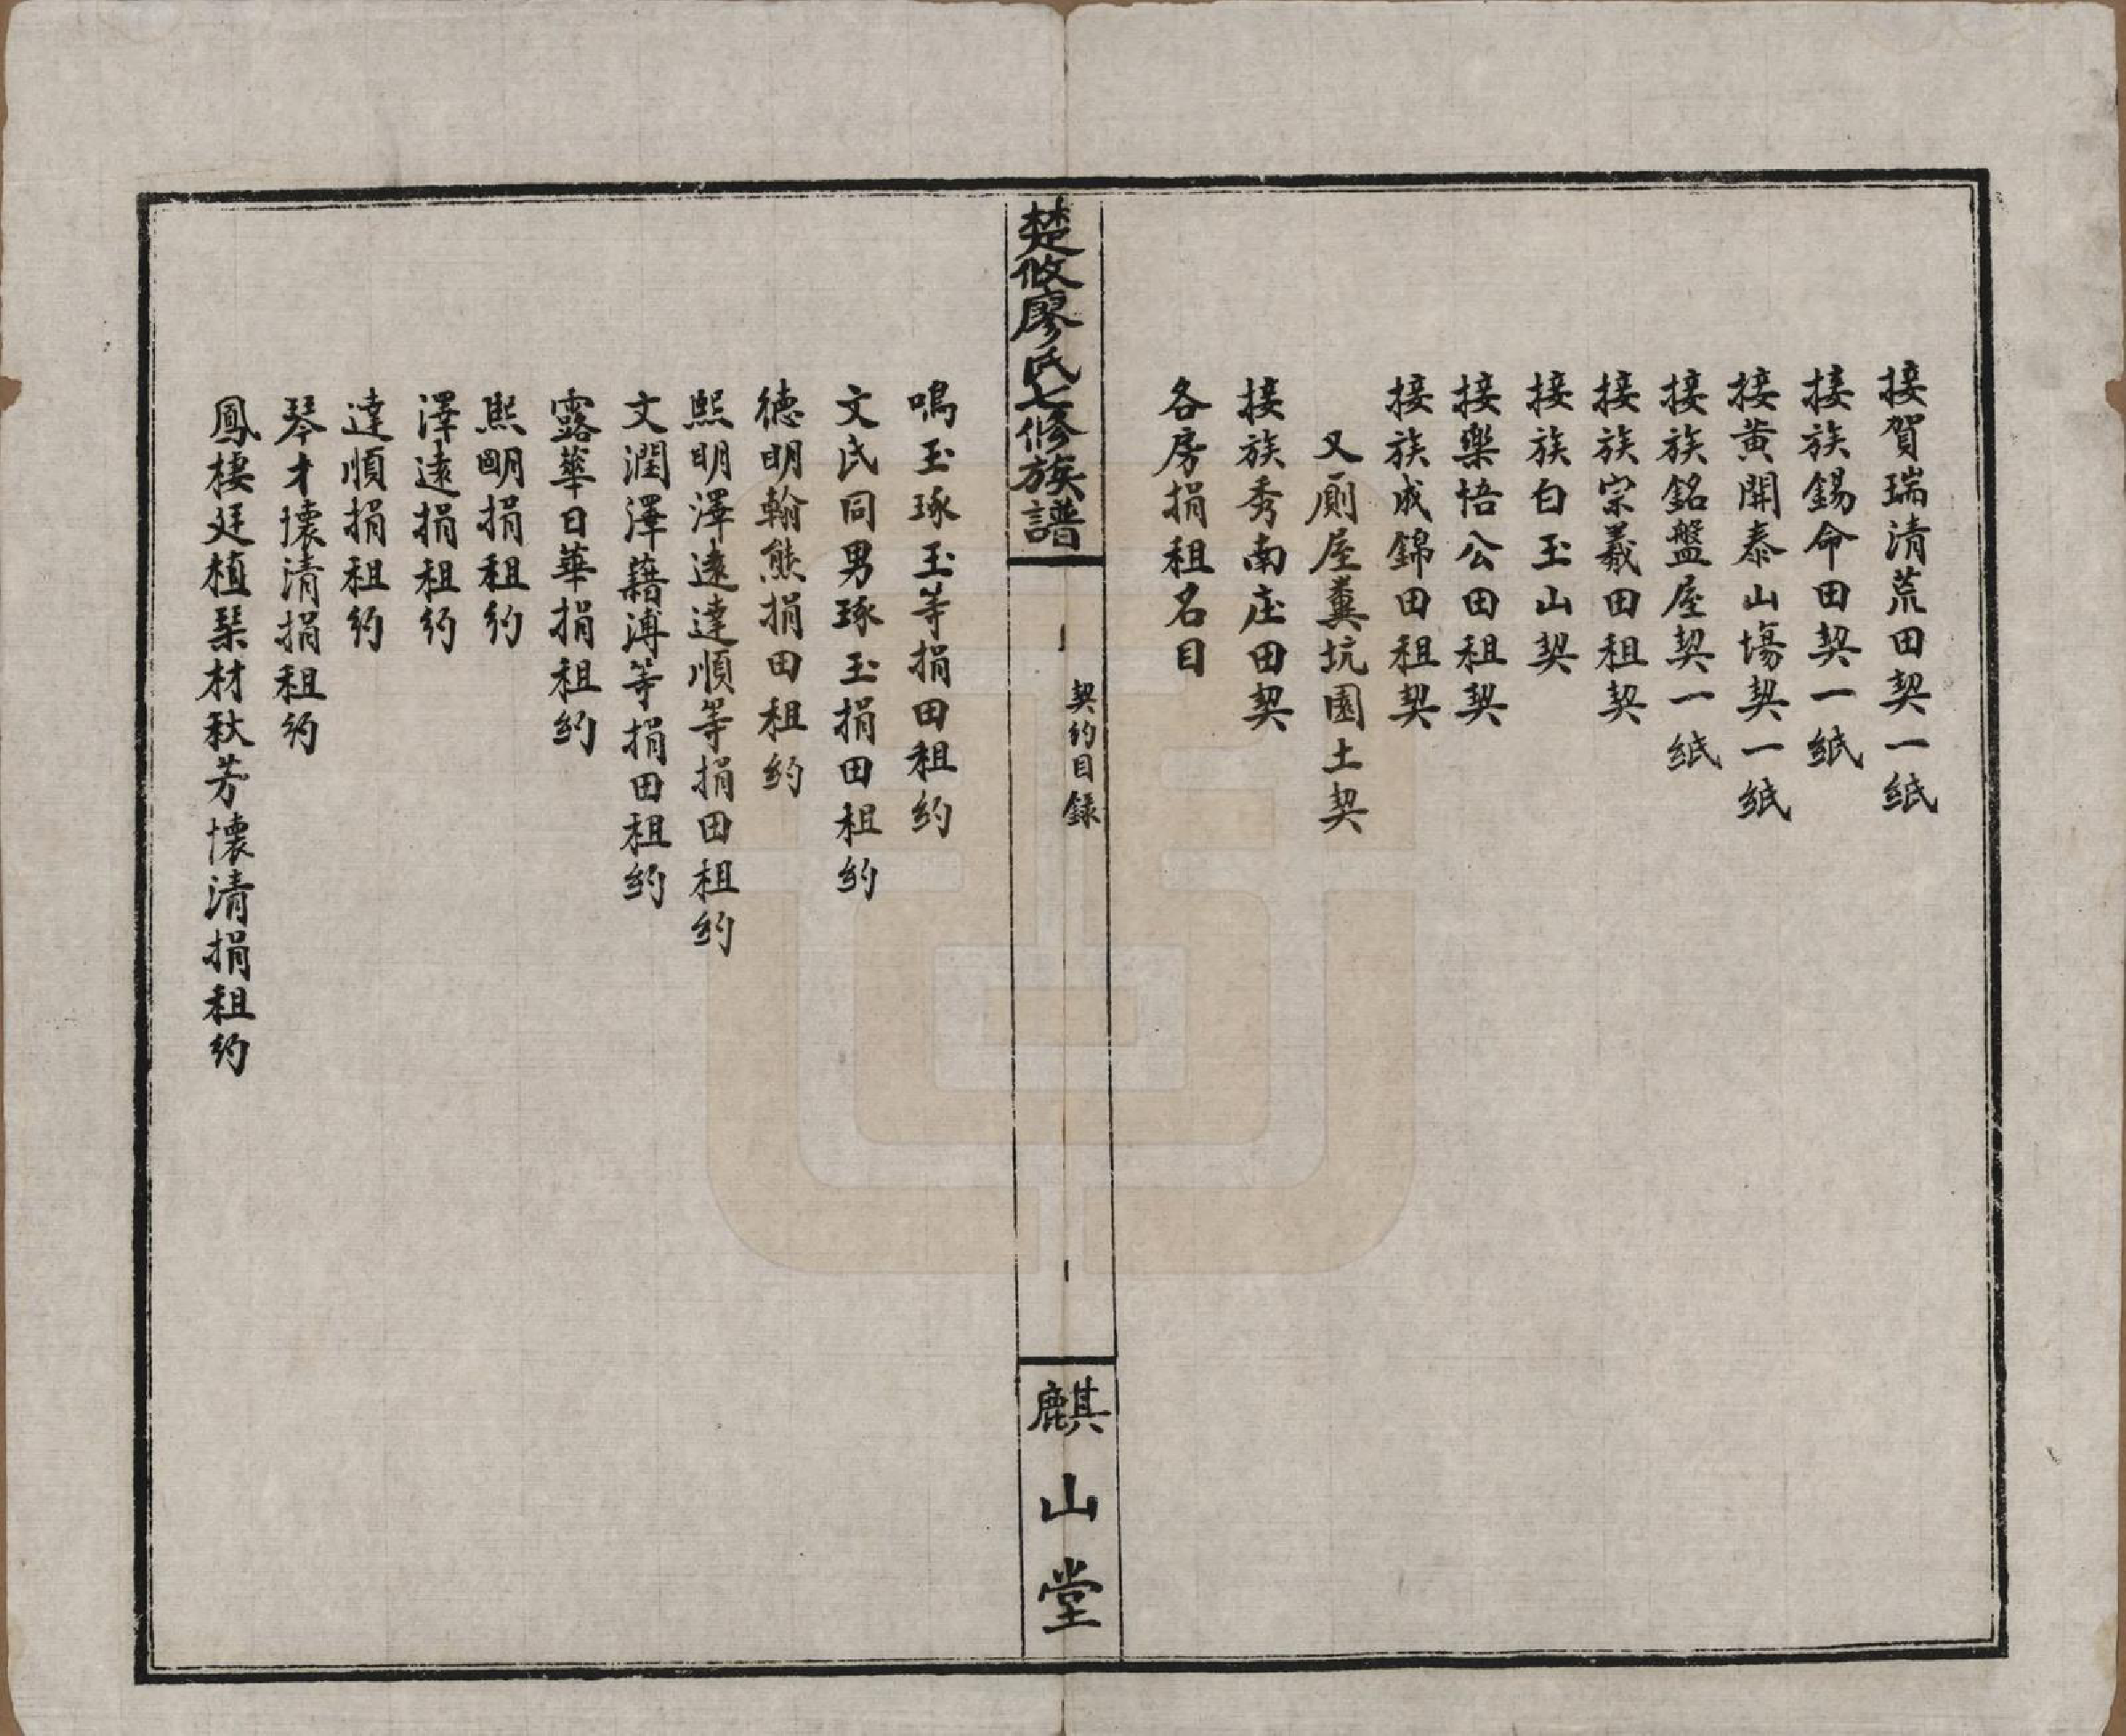 接賀瑞清荒田契一紙
接族錫命田契一紙
接黃開泰山塲契一紙
接族銘盤屋契一紙
接族宗羲田租契
接族白玉山契
接樂悟公田租契
接族成錦田租契
又厠屋糞坑園土契
接族秀南庄田契
各房捐租名目
楚攸廖氏七修族譜
契約目錄
麒山堂
鳴玉琢玉等捐田租約
文氏同男琢玉捐田租約
德明翰熊捐田租約
熙明澤遠達順等捐田租約
文潤澤藉溥等捐田租約
露華日華捐租約
熙明捐租約
澤遠捐租約
達順捐租約
琴才懷清捐租約
鳳棲廷植琹材秋芳懷清捐租約